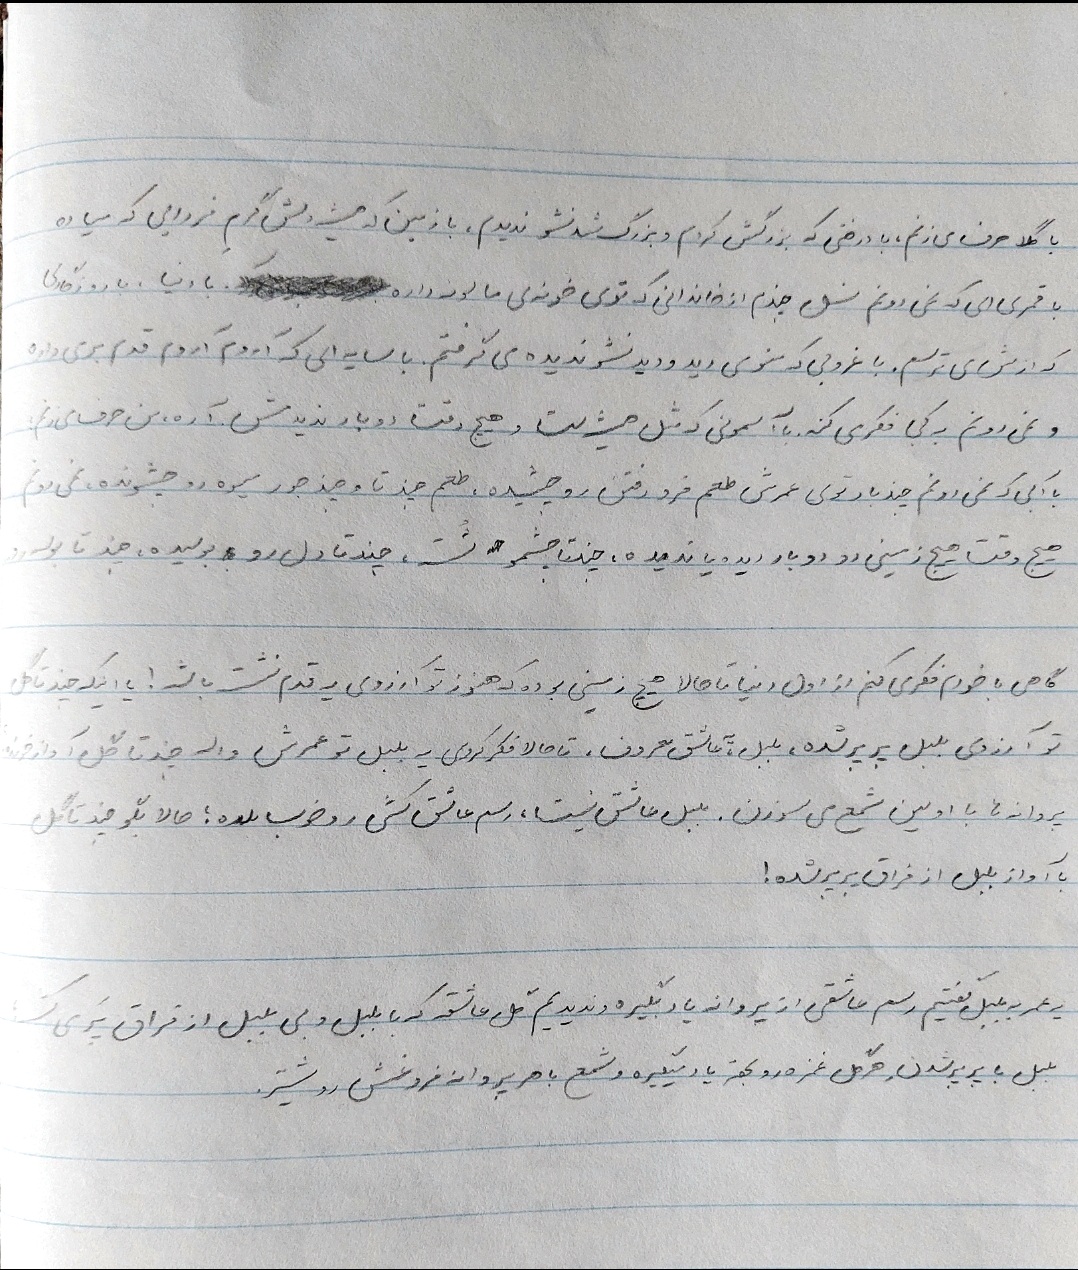 با گلا حرف می‌زنم، با درختی که بزرگش کردم و بزرگ شدنشو ندیدم، با زمین که همیشه دلش گرمِ فردایی که میاده
با قمری‌ای که نمی‌دونم نسل چندم از خاندانی که توی خونه‌ی ما لونه داره. با دنیا، با روزگاری
که ازش می‌ترسم. با غروبی که منو می‌دید و دیدنشو ندیده می‌گرفتم. با سایه‌ای که آروم آروم قدم برمی‌داره
و نمی‌دونم به کی فکر می‌کنه. با آسمونی که مثل همیشه‌ست و هیچ وقت دوبار ندیدمش. آره، من حرف می‌زنم.
با آبی که نمی‌دونم چندبار توی عمرش طعم فرو رفتن رو چشیده، طعم چند تا و چند جور میوه رو چشونده، نمی‌دونم
هیچ وقت هیچ زمینی رو دوبار دیده یا ندیده، چندتا چشمو شُست، چندتا دل رو بوسیده، چند تا رو
گاهی با خودم فکر می‌کنم از اول دنیا تا حالا هیچ زمینی بوده که هنوز تو آرزوی یه قدم نشسته باشه! یا اینکه چند تا گل
تو آرزوی بلبل پرپر شده، بلبل، عاشق معروف، تا حالا فکر کردی یه بلبل تو عمرش واسه چندتا گل آواز خونده
پروانه‌ها با اولین شمع می‌سوزن. بلبل عاشق نیست، رسم عاشق‌کشی رو خوب بلده؛ حالا بگو چند تا گل
با آواز بلبل از فراق پرپر شده!
یه عمر به بلبل گفتیم رسم عاشقی از پروانه یاد بگیره و ندیدیم گل عاشقه که با بلبل و بی بلبل از فراق پَر می‌کشه؛
بلبل با پرپر شدن هر گل غمزه رو بهتر یاد میگیره و شمع با هر پروانه فروغش روشن‌تر.